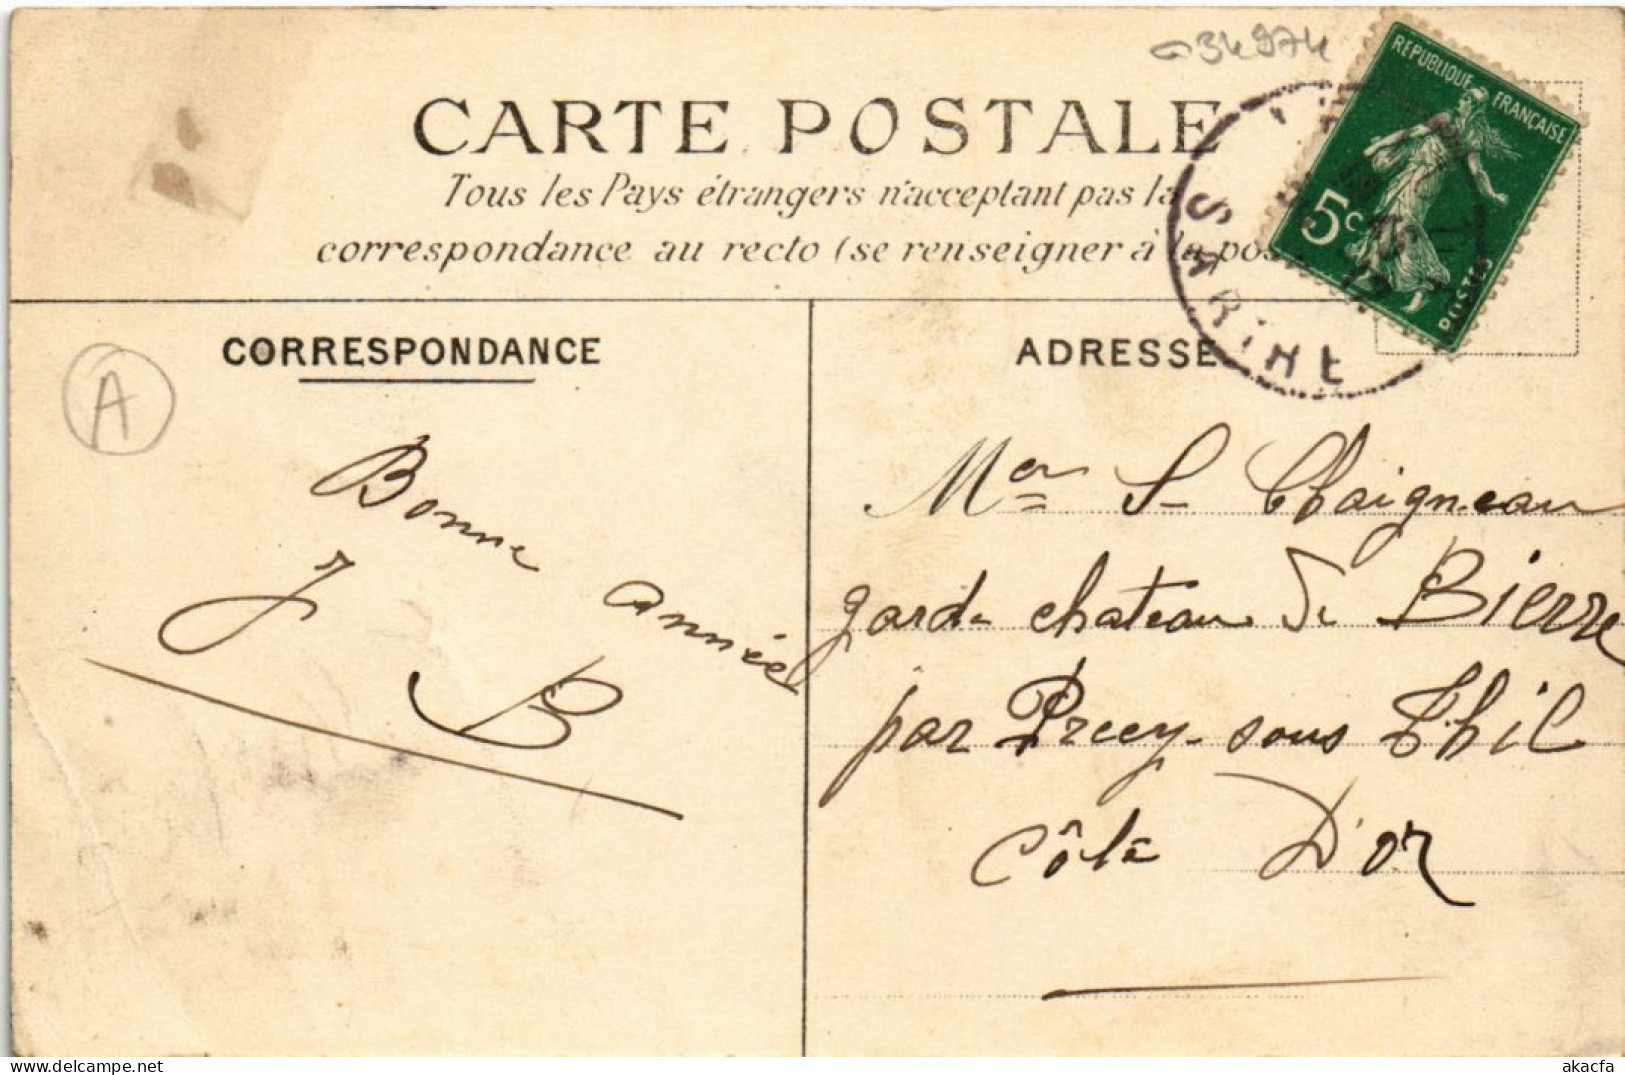 34974
CARTE POSTALE
Tous les Pays étrangers n'acceptant pas la
correspondance au recto (se renseigner à la pos
REPUBLIQUE FRANÇAISE
5c
POSTES
CORRESPONDANCE
A
Bonne année
J B
ADRESSE
Mer S Chaigneau
garde chateau de Bierre
par Precy-sous Thil
Côte D'or
akacfa